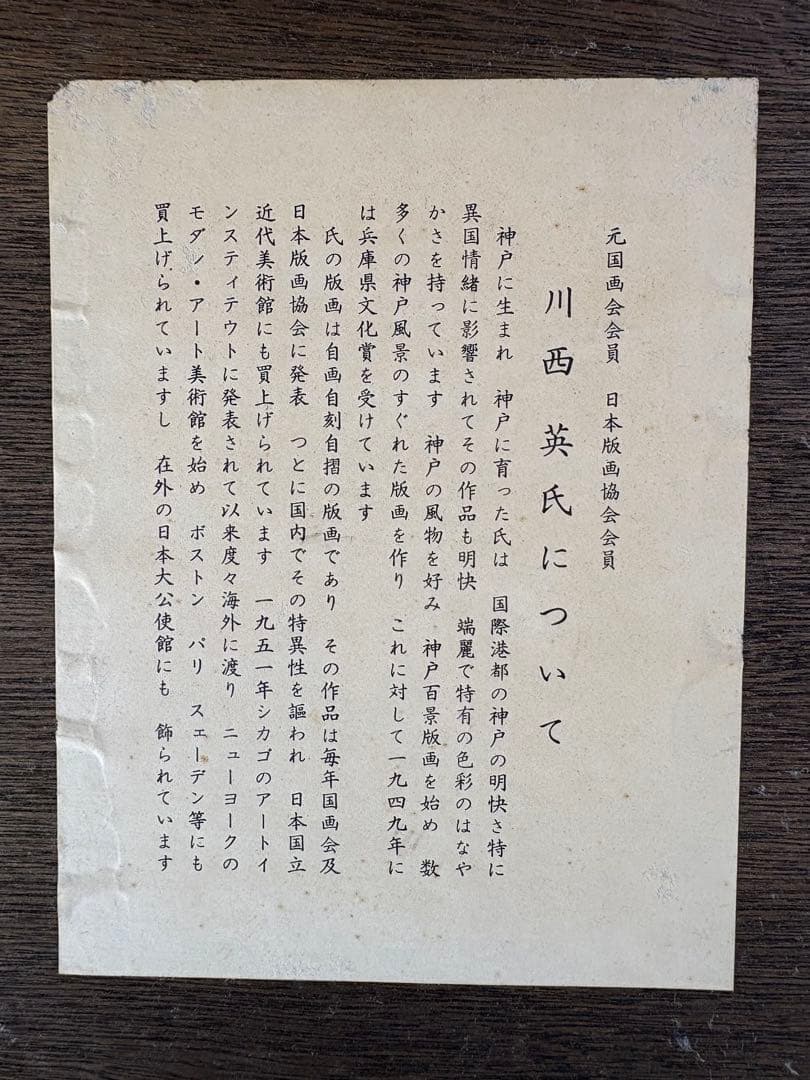 元国画会会員　日本版画協会会員
川西英氏について
神戸に生まれ　神戸に育った氏は　国際港都の神戸の明快さ特に
異国情緒に影響されてその作品も明快　端麗で特有の色彩のはなや
かさを持っています　神戸の風物を好み　神戸百景版画を始め　数
多くの神戸風景のすぐれた版画を作り　これに対して一九四九年に
は兵庫県文化賞を受けています
氏の版画は自画自刻自摺の版画であり　その作品は毎年国画会及
日本版画協会に発表　つとに国内でその特異性を謳われ　日本国立
近代美術館にも買上げられています　一九五一年シカゴのアートイ
ンスティテウトに発表されて以来度々海外に渡り　ニューヨークの
モダン・アート美術館を始め　ボストン　パリ　スェーデン等にも
買上げられていますし　在外の日本大公使館にも　飾られています